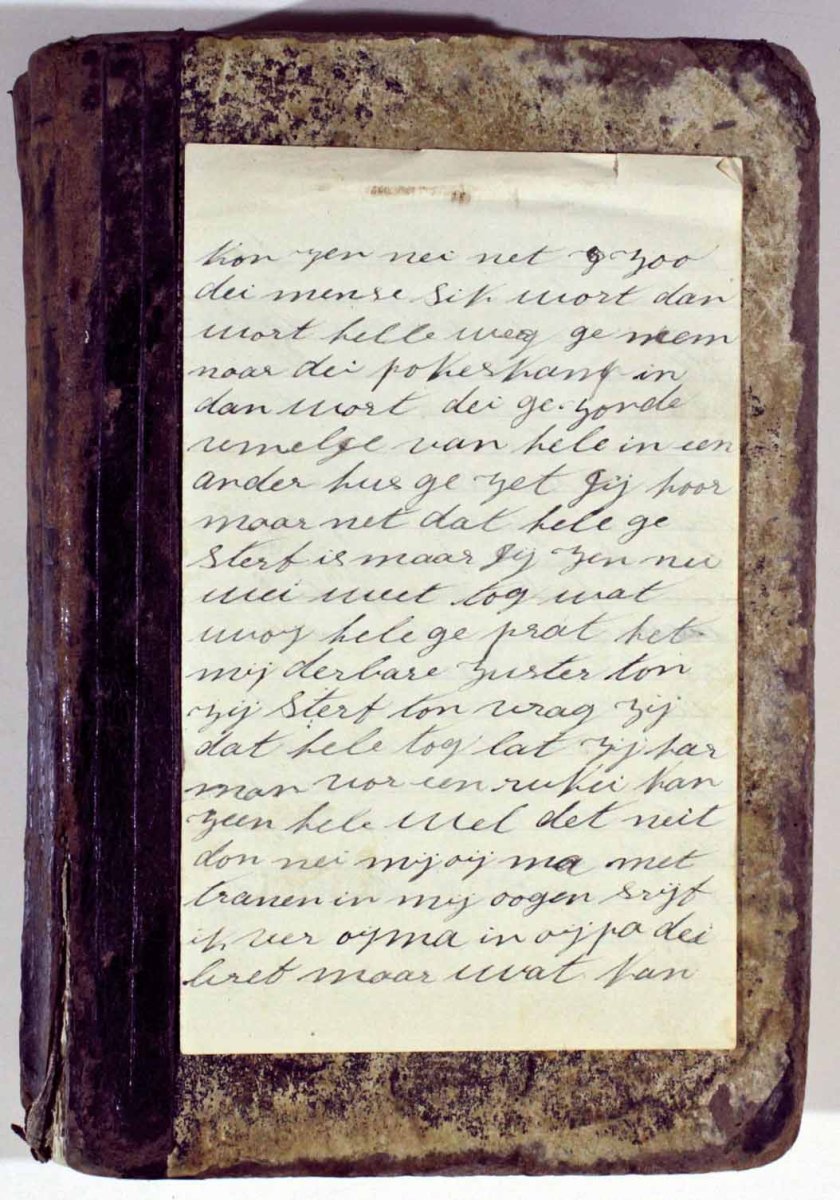 kon zen nei net zoo
dei mense sik wort dan
wort helle weg ge mem
naar dei pokeskamp in
dan wort dei ge zonde
van hele in een
ander hus ge zet Jij hoor
maar net dat hele ge
sterf is maar Jij zen nei
wei weet tog wat
woy hele ge prat het
mij derbare zuster ton
zij sterf ton vrag zij
dat hele tog lat zij har
man vor een kan
zeen hele wel det neit
don nei mij oij ma met
tranen in mij oogen srijf
ik ver oijma in oij pa dei
bret maar wat kan